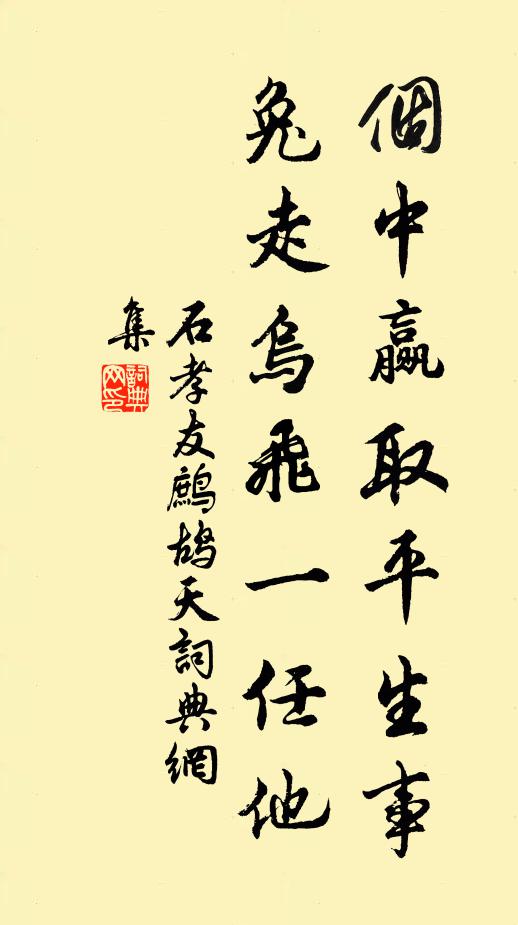 個中贏取平生事
兔走烏飛一任他
石孝友鷓鴣天詞典網
集
詞典網印